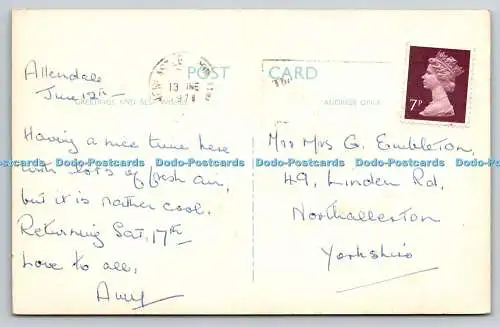 POST CARD
GREETINGS AND
ADDRESS ONLY
13 JNE
7P
Allendale
June 12th
Having a nice time here
with lots of fresh air,
but it is rather cool.
Returning Sat, 17th
Love to all,
Amy
Mr & Mrs G. Embleton,
49, Linden Rd,
Northallerton
Yorkshire
Dodo-Postcards Dodo-Postcards Dodo-Postcards Dodo-Postcards Dodo-Postcards